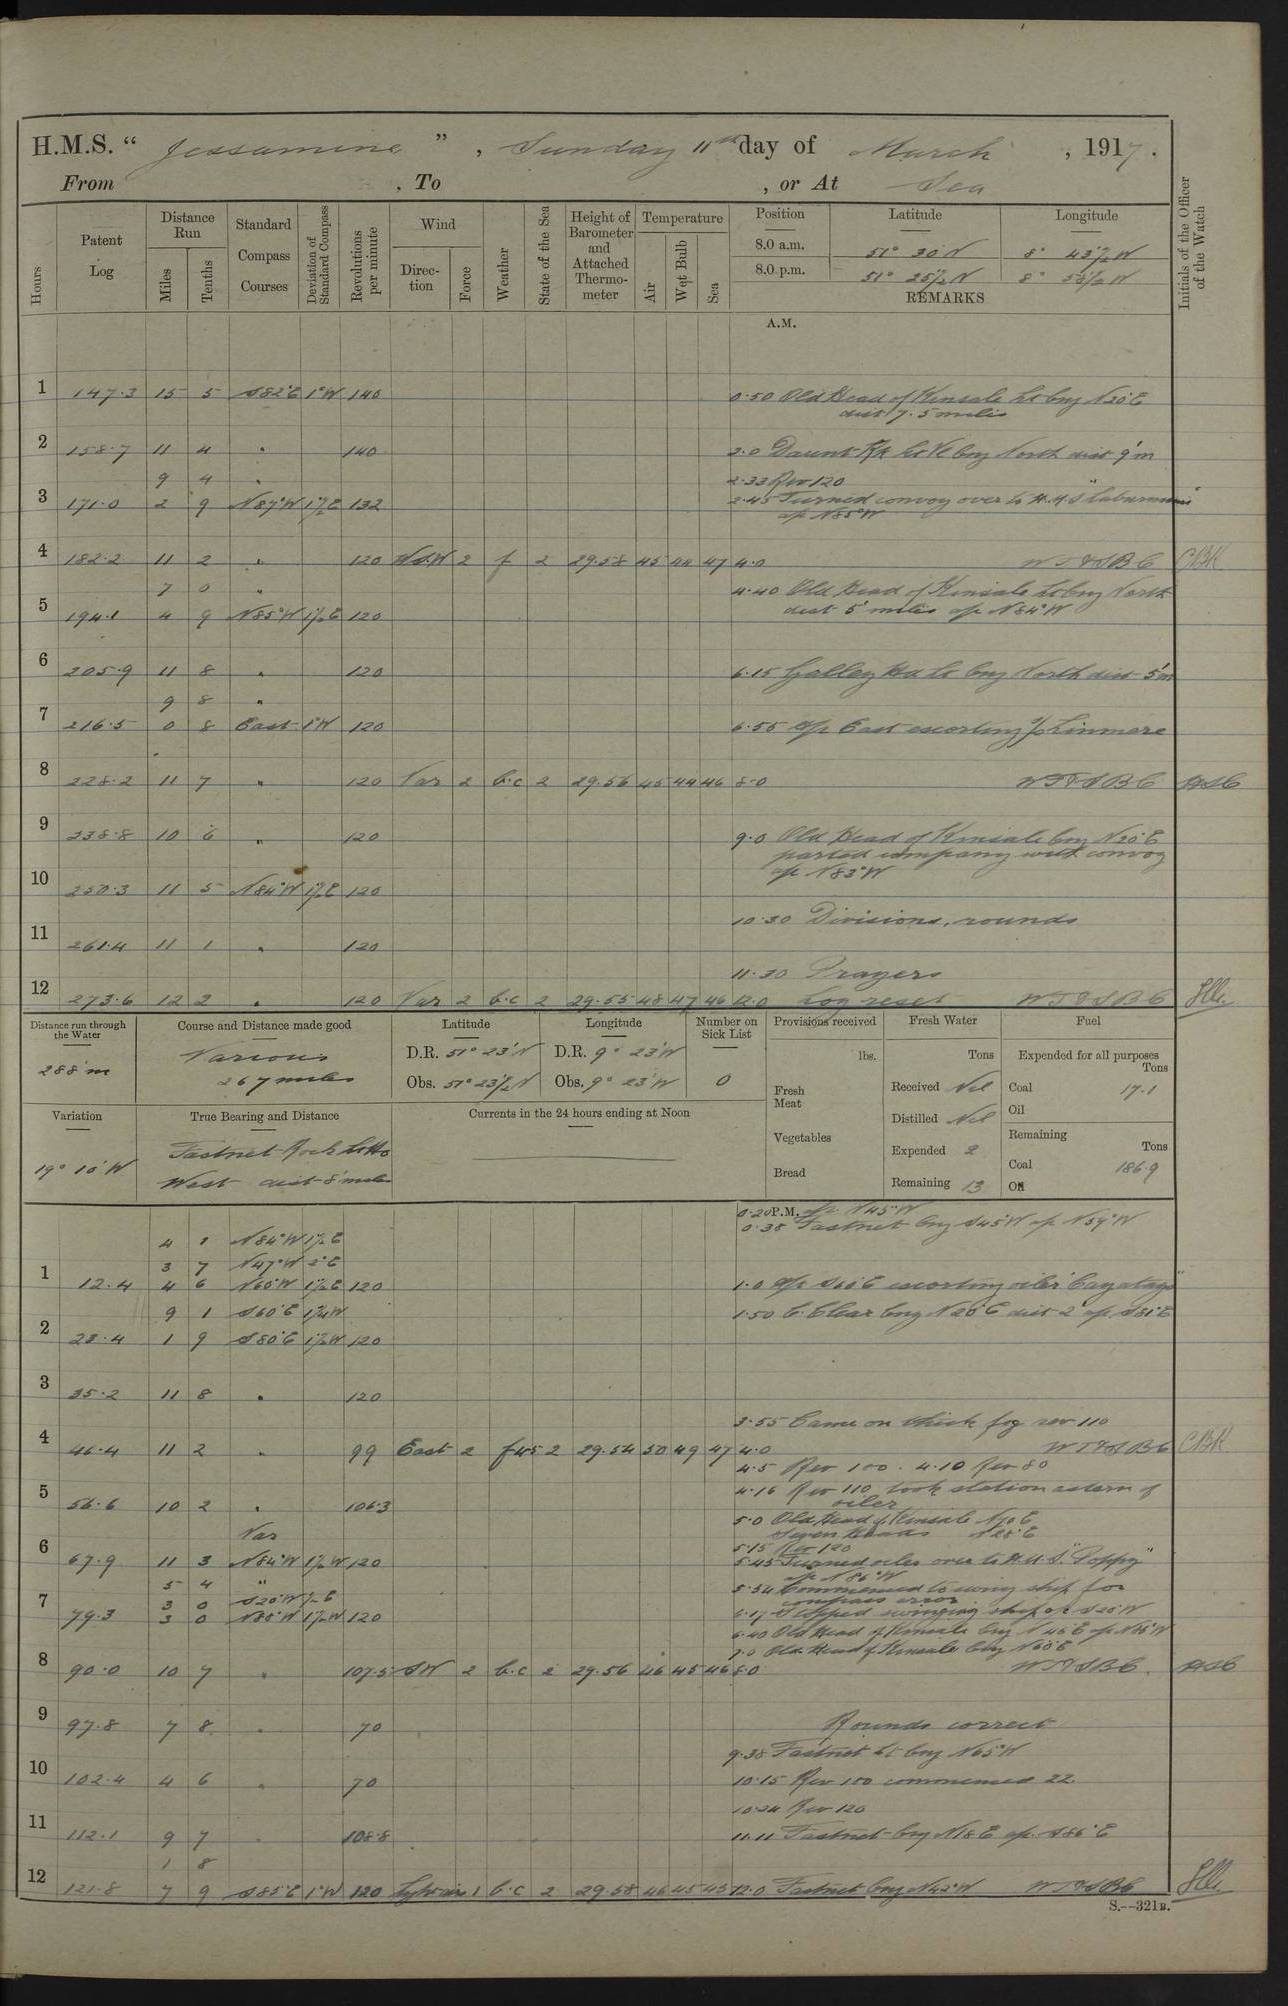 H.M.S. “ Jessamine ” , Sunday 11th day of March , 1917.
From , To , or At Sea
Hours Patent Log Distance Run Miles Tenths Standard Compass Courses Deviation of Standard Compass Revolutions per minute Wind Direction Force Weather State of the Sea Height of Barometer and Attached Thermometer Temperature Air Wet Bulb Sea Position Latitude Longitude Initials of the Officer of the Watch
8.0 a.m. 51° 30' N 8° 43½' W
8.0 p.m. 51° 25½' N 8° 58½' W
REMARKS
A.M.
1 147.3 15 5 S82°E 1°W 140 0.50 Old Head of Kinsale Lt brg N20°E
dist 7.5 miles
2 158.7 11 4 " 140 2.0 Daunt Rk Lt Vl brg North dist 9'm
9 4 " 2.33 Rev 120
3 171.0 2 9 N87°W 1½E 132 2.45 Turned convoy over to H.M.S "Laburnum"
a/c N85°W
4 182.2 11 2 " 120 WSW 2 f 2 29.58 45 44 47 4.0 WT&SBC CBH
7 0 " 4.40 Old Head of Kinsale Lt brg North
5 194.1 4 9 N85°W 1½E 120 dist 5' miles a/c N84°W
6 205.9 11 8 " 120 6.15 Galley Hd Lt brg North dist 5'm
9 8 "
7 216.5 0 8 East 1°W 120 6.55 a/c East escorting S/S Linmere
8 228.2 11 7 " 120 Var 2 b.c 2 29.56 45 44 46 8.0 WT&SBC
9 238.8 10 6 " 120 9.0 Old Head of Kinsale brg N20°E
parted company with convoy
a/c N83°W
10 250.3 11 5 N84°W 1½E 120
10.30 Divisions, rounds
11 261.4 11 1 " 120
11.30 Prayers
12 273.6 12 2 " 120 Var 2 b.c 2 29.55 48 47 46 12.0 Log reset WT&SBC
Distance run through the Water Course and Distance made good Latitude Longitude Number on Sick List Provisions received Fresh Water Fuel
288'm Various
267 miles
D.R. 51° 23' N D.R. 9° 23' W
Obs. 51° 23½' N Obs. 9° 23' W 0
lbs. Tons Expended for all purposes Tons
Fresh Meat Received Nil Coal 17.1
Distilled Nil Oil
Variation True Bearing and Distance Currents in the 24 hours ending at Noon
Vegetables Expended 2 Remaining Tons
19° 10' W Fastnet Rock Lt Ho
West dist 8' miles
Bread Remaining 13 Coal 186.9
Oil
0.20 P.M. a/c N45°W
0.38 Fastnet brg S45°W a/c N59°W
4 1 N84°W 1½E
3 7 N47°W 2°E
1 12.4 4 6 N60°W 1½E 120 1.0 a/c S60°E escorting oiler
9 1 S60°E 1¼W 1.50 C. Clear brg N20°E dist 2' a/c S81°E
2 23.4 1 9 S80°E 1½W 120
3 35.2 11 8 " 120
3.55 Came on thick fog rev 110
4 46.4 11 2 " 99 East 2 2 29.54 50 49 47 4.0 WT&SBC CBH
4.5 Rev 100. 4.10 Rev 80
5 56.6 10 2 " 106.3 4.16 Rev 110 took station astern of
oiler
5.0 Old Head of Kinsale N70E
Seven Heads N28°E
Var 5.15 Rev 120
6 67.9 11 3 N84°W 1½W 120 5.45 Turned oiler over to H.M.S. "Poppy"
a/c N86°W
5 4 " 5.54 Commenced to swing ship for
compass error
3 0 S20°W ½E
7 79.3 3 0 N88°W 1½W 120 6.17 Stopped swinging ship a/c S20°W
6.40 Old Head of Kinsale brg N46°E a/c N86°W
7.0 Old Head of Kinsale brg N60°E
8 90.0 10 7 " 107.5 SW 2 b.c 2 29.56 46 45 46 8.0 WT&SBC
9 97.8 7 8 " 70 Rounds correct
9.38 Fastnet Lt brg N65°W
10 102.4 4 6 " 70 10.15 Rev 100 commenced 22
10.24 Rev 120
11 112.1 9 7 " 108.8 11.11 Fastnet brg N18°E a/c S86°E
1 8
12 121.8 7 9 S85°E 1°W 120 Lght airs 1 b.c 2 29.58 46 45 45 12.0 Fastnet brg N42°W WT&SBC
S.—321B.